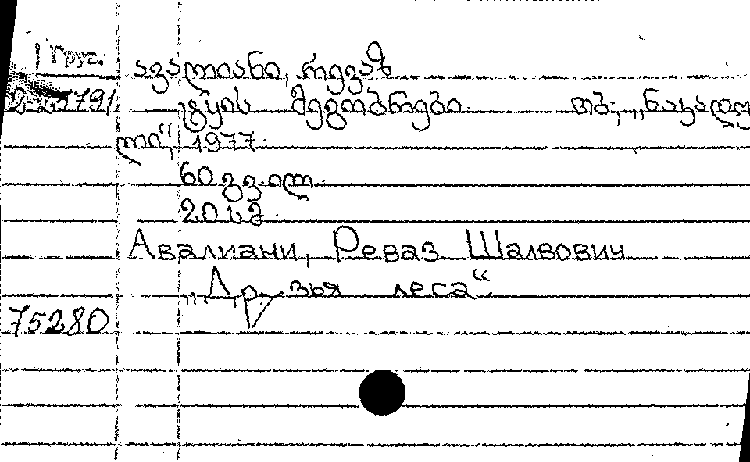 1 Груз.
ავალიანი, რევაზ
225791 ტყის მეგობრები. თბ., „ნაკადუ
ლი“, 1977.
60 გვ. ილ.
20 სმ
Авалиани, Реваз Шалвович
„Друзья леса“
75280